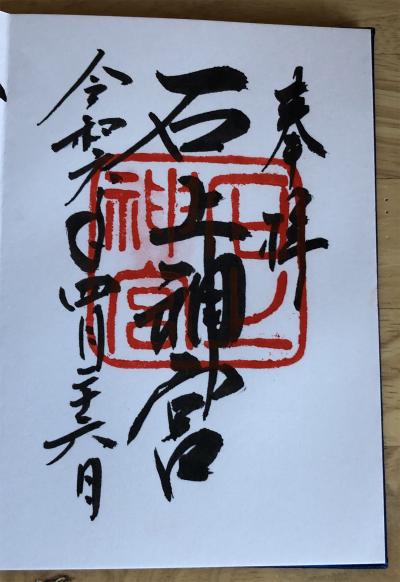 奉拝
石上神宮
令和六年四月二十六日
石上
神宮